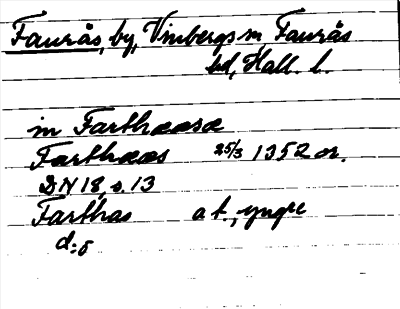 Faurås, by, Vinbergs sn, Faurås
hd, Hall. l.
in Farthaasæ
Farthaas 25/3 1352 or.
DN 18, s. 13
Farthas a t., yngre
d:o